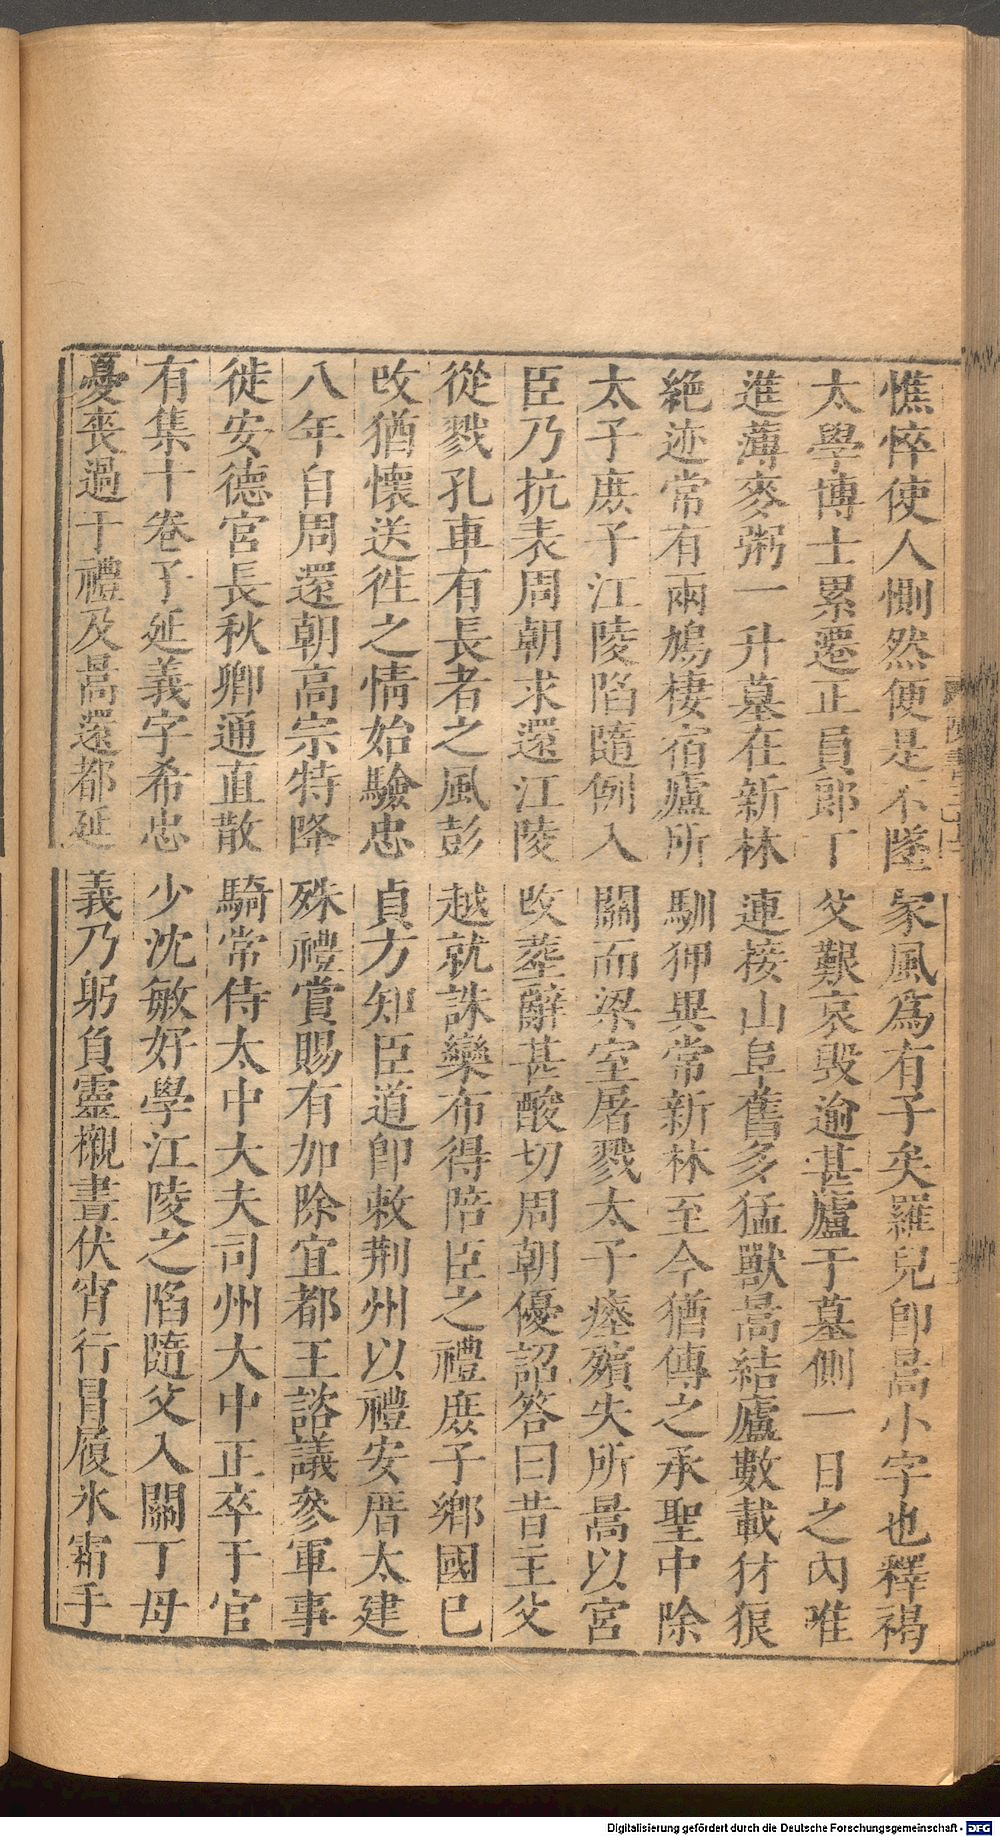 憔悴使人惻然便是不墜家風爲有子矣羅兒卽暠小字也釋褐
太學博士累遷正員郎丁父艱哀毀逾甚廬于墓側一日之內唯
進薄麥粥一升墓在新林連接山阜舊多猛獸暠結廬數載犲狼
絕迹常有兩鳩棲宿廬所馴狎異常新林至今猶傳之承聖中除
太子庶子江陵陷隨例入關而梁室屠戮太子瘞殯失所暠以宮
臣乃抗表周朝求還江陵改葬辭甚酸切周朝優詔答曰昔主父
從戮孔車有長者之風彭越就誅欒布得陪臣之禮庶子鄉國已
改猶懷送徃之情始驗忠貞方知臣道卽敕荆州以禮安厝太建
八年自周還朝高宗特降殊禮賞賜有加除宜都王諮議參軍事
徙安德宮長秋卿通直散騎常侍太中大夫司州大中正卒于官
有集十卷子延義字希忠少沈敏好學江陵之陷隨父入關丁母
憂喪過于禮及暠還都延義乃躬負靈櫬晝伏宵行冒履氷霜手
Digitalisierung gefördert durch die Deutsche Forschungsgemeinschaft - DFG